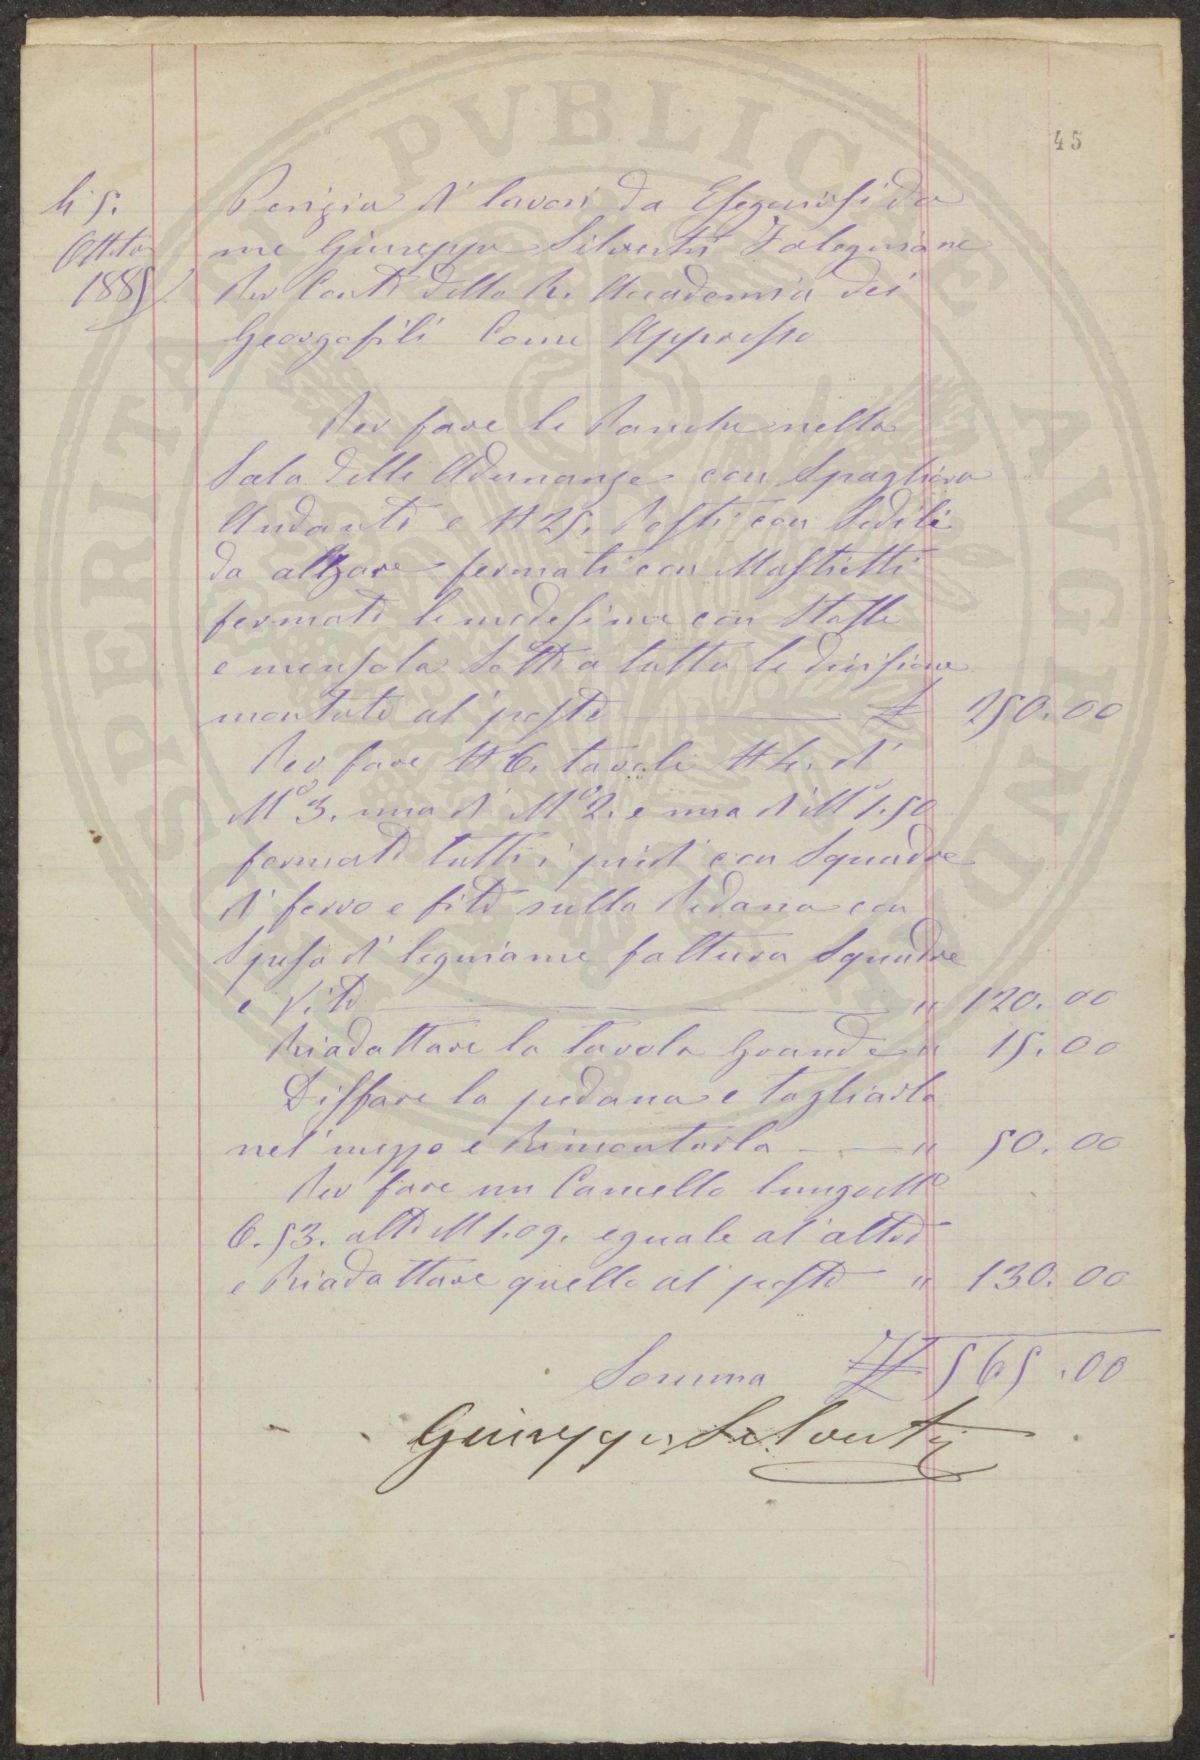 45
li 5.
Ottbre
1885
Perizia d' lavori da Eseguirsi da
me Giuseppe Silvestri Falegniame
Per Conto della R. Accademia dei
Georgofili Come Appresso
Per fare le Panche nella
Sala delle Adunanze con Spagliera
Andante e N 25. Posti con Sedili
da alzare fermati con Mastietti
fermate le medesime con Staffe
e mensola sotto a tutte le divisione
montate al posto £ 250.00
Per fare N 6. tavole N 4. d'
Mo 3. una d' Mo 2. e una d' Mo 1.50
fermate tutti i piedi con Squadre
d' ferro e fite sulla Pedana con
Spesa d' legniame fattura Squadre
e Vite " 120.00
Riadattare la tavola Grande " 15.00
Disfare la pedana e tagliarla
nel mezzo e Rimontarla " 50.00
Per fare un Cancello lungo Mo
6.53. alto M 1.09. eguale al altro
e Riadattare quello al posto " 130.00
Somma £ 565.00
Giuseppe Silvestri
PERITAT PVBLICE AVGENDAE